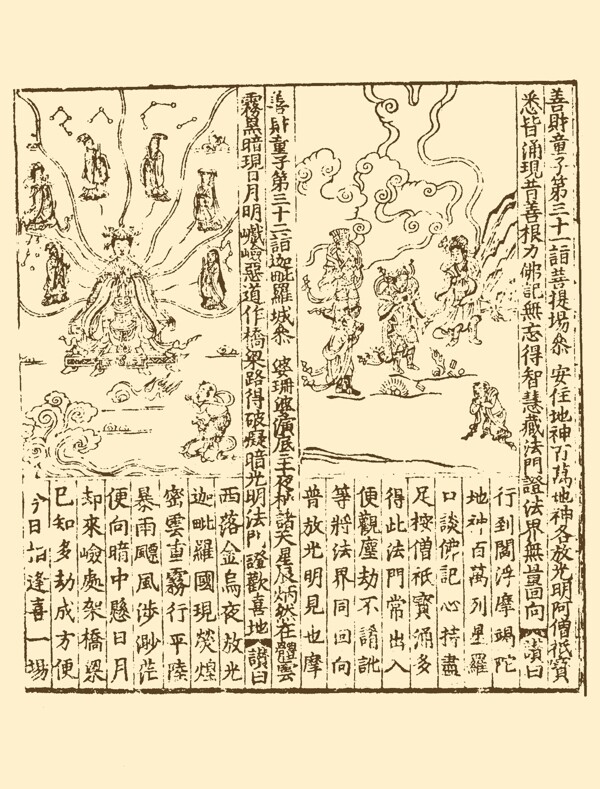 善財童子第三十一詣菩提場叅 安住地神百萬地神各放光明阿僧祇寶
悉皆涌現昔善根力佛記無忘得智慧藏法門證法界無量回向 讚曰
行到閻浮摩竭陀
地神百萬列星羅
口談佛記心持盡
足按僧祇寳涌多
得此法門常出入
便觀塵劫不誵訛
等將法界同回向
普放光明見也摩
善財童子第三十二詣迦毗羅城叅 婆珊婆演底主夜神諸天星辰炳然在體雲
霧黑暗現日月明巇嶮惡道作橋梁路得破癡暗光明法門證歡喜地 讚曰
西落金烏夜放光
迦毗羅國現熒煌
密雲重霧行平陸
暴雨飈風渉渺茫
便向暗中懸日月
却來嶮處架橋梁
已知多劫成方便
今日相逢喜一場